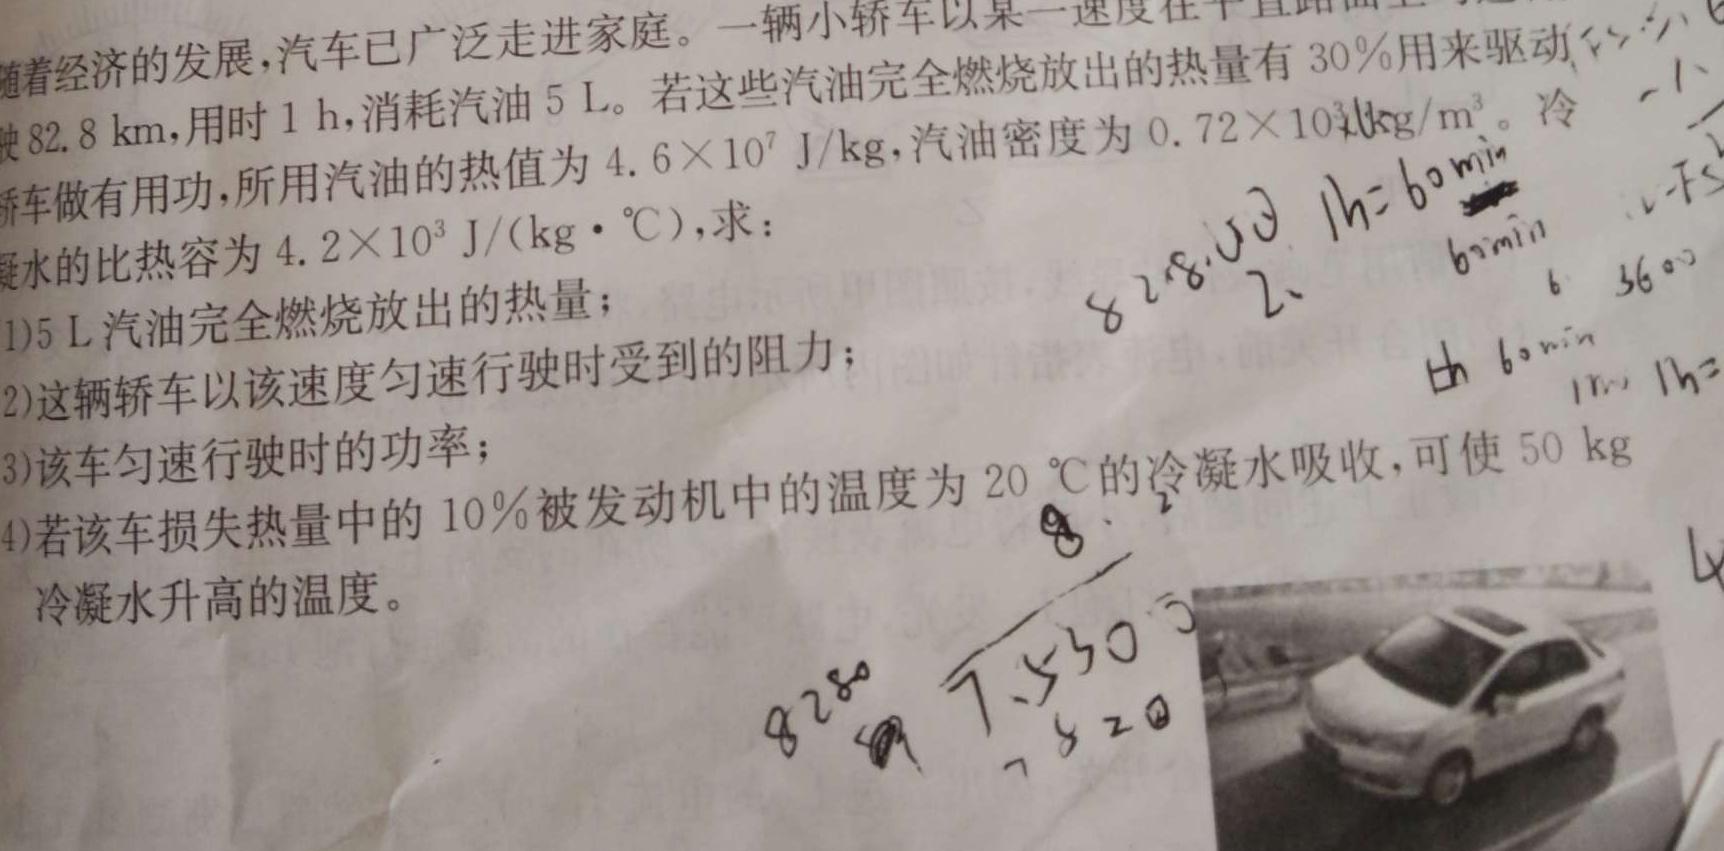 随着经济的发展,汽车已广泛走进家庭。一辆小轿车以某一速度在平直路面上
驶 82.8 km,用时 1 h,消耗汽油 5 L。若这些汽油完全燃烧放出的热量有 30%用来驱动
轿车做有用功,所用汽油的热值为 4.6×10⁷ J/kg,汽油密度为 0.72×10³ kg/m³。冷
凝水的比热容为 4.2×10³ J/(kg·℃),求:
1)5 L 汽油完全燃烧放出的热量;
2)这辆轿车以该速度匀速行驶时受到的阻力;
3)该车匀速行驶时的功率;
4)若该车损失热量中的 10%被发动机中的温度为 20 ℃的冷凝水吸收,可使 50 kg
冷凝水升高的温度。
1h=60min
60min
3600
60min
1h=
8280